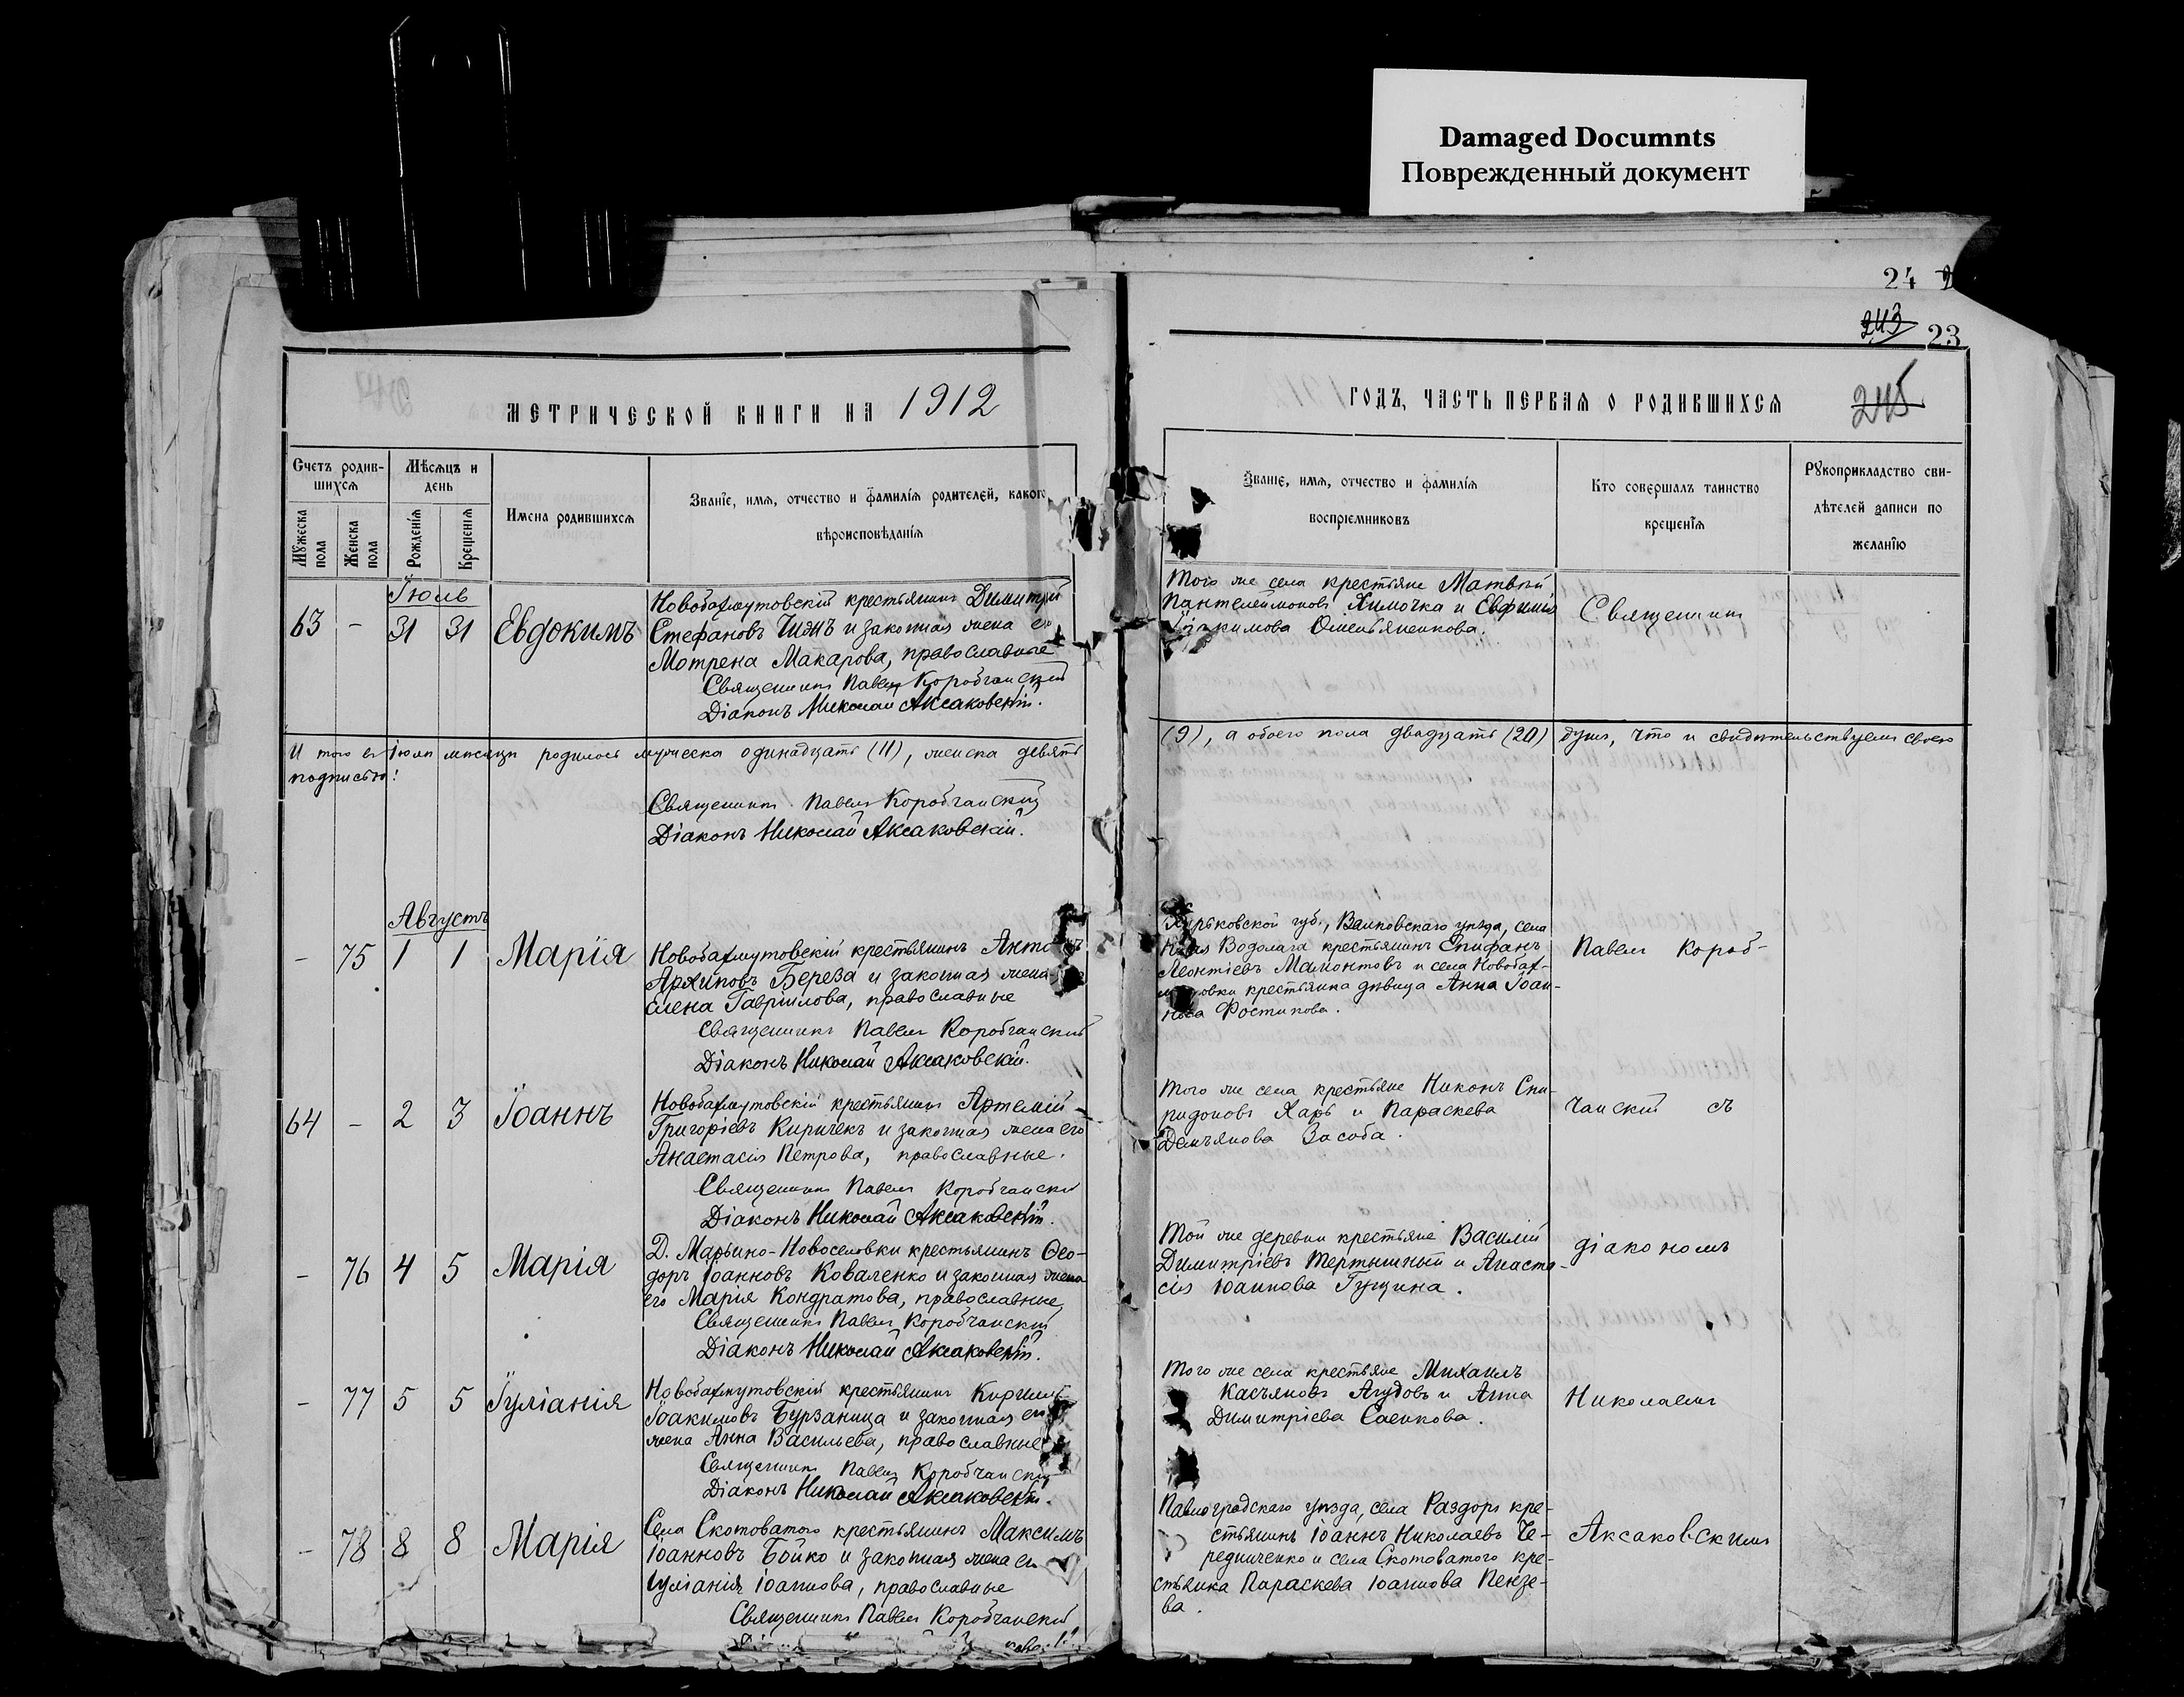 Damaged Documnts
Поврежденный документ
24
243 23
МЕТРИЧЕСКОЙ КНИГИ НА 1912
Счетъ родив-
шихся
Мѣсяцъ и
день
Мужеска
пола
Женска
пола
Рожденія
Крещенія
Имена родившихся
Званіе, имя, отчество и фамилія родителей, какого
вѣроисповѣданія
Іюль
63 - 31 31 Евдокимъ
Новобахмутовскій крестьянинъ Димитрій
Стефановъ Чижъ и законная жена его
Мотрена Макарова, православные
Священникъ Павелъ Коробчанскій
Діаконъ Николай Аксаковскій.
И того въ Іюлѣ мѣсяцѣ родилось мужеска одинадцать (11), женска девять
подписью:
Священникъ Павелъ Коробчанскій
Діаконъ Николай Аксаковскій.
Августъ
- 75 1 1 Марія
Новобахмутовскій крестьянинъ
Архиповъ Береза и законная жена
Елена Гавріилова, православные
Священникъ Павелъ Коробчанскій
Діаконъ Николай Аксаковскій.
64 - 2 3 Іоаннъ
Новобахмутовскій крестьянинъ Артемій
Григоріевъ Киричекъ и законная жена его
Анастасія Петрова, православные.
Священникъ Павелъ Коробчанскій
Діаконъ Николай Аксаковскій.
- 76 4 5 Марія
Д. Марьино-Новоселовки крестьянинъ Ѳео-
доръ Іоанновъ Коваленко и законная жена
его Марія Кондратова, православные,
Священникъ Павелъ Коробчанскій
Діаконъ Николай Аксаковскій.
- 77 5 5 Іуліанія
Новобахмутовскій крестьянинъ Кириллъ
Іоакимовъ Бурзаница и законная его
жена Анна Васильева, православные
Священникъ Павелъ Коробчанскій
Діаконъ Николай Аксаковскій.
- 78 8 8 Марія
Села Скотоватого крестьянинъ Максимъ
Іоанновъ Бойко и законная жена его
Іуліанія Іоаннова, православные
Священникъ Павелъ Коробчанскій
ГОДЪ, ЧАСТЬ ПЕРВАЯ О РОДИВШИХСЯ 245
Званіе, имя, отчество и фамилія
воспріемниковъ
Кто совершалъ таинство
крещенія
Рукоприкладство сви-
дѣтелей записи по
желанію
Того же села крестьяне Матвѣй
Пантелеймоновъ Химочка и Евфимія
Омельяненкова.
Священникъ
(9), а обоего пола двадцать (20) душъ, что и свидѣтельствуемъ своею
Харьковской губ., Валковскаго уѣзда, села
Водолага крестьянинъ Епифанъ
Леонтіевъ Мамонтовъ и села Новобах-
мутовки крестьянка дѣвица Анна Іоан-
нова Фостикова.
Павелъ Короб-
Того же села крестьяне Никонъ Спи-
ридоновъ Харь и Параскева
Демьянова Засоба.
чанскій съ
Той же деревни крестьяне Василій
Димитріевъ Тертышный и Анаста-
сія Іоаннова Гущина.
діакономъ
Того же села крестьяне Михаилъ
Касьяновъ Агудовъ и Анна
Димитріева Саенкова.
Николаемъ
Павлоградскаго уѣзда, села Раздоръ кре-
стьянинъ Іоаннъ Николаевъ Че-
редниченко и села Скотоватого кре-
стьянка Параскева Іоаннова Пензе-
ва.
Аксаковскимъ